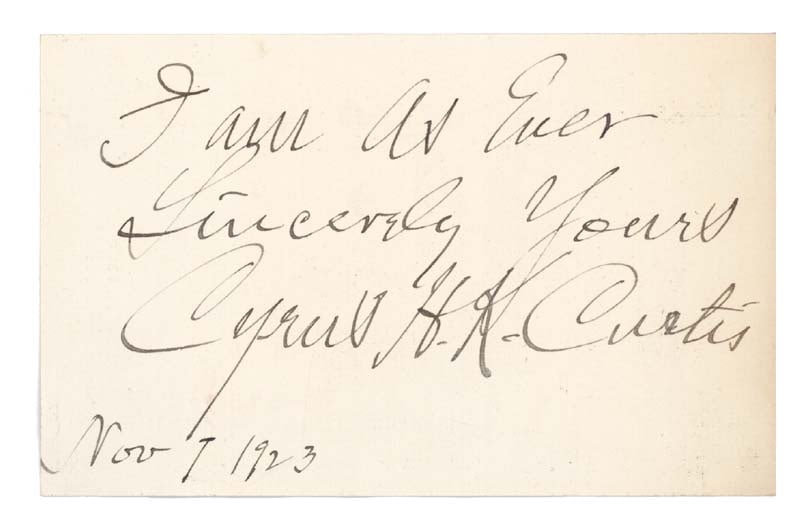 I am As Ever
Sincerely Yours
Cyrus H. K. Curtis
Nov 7 1923